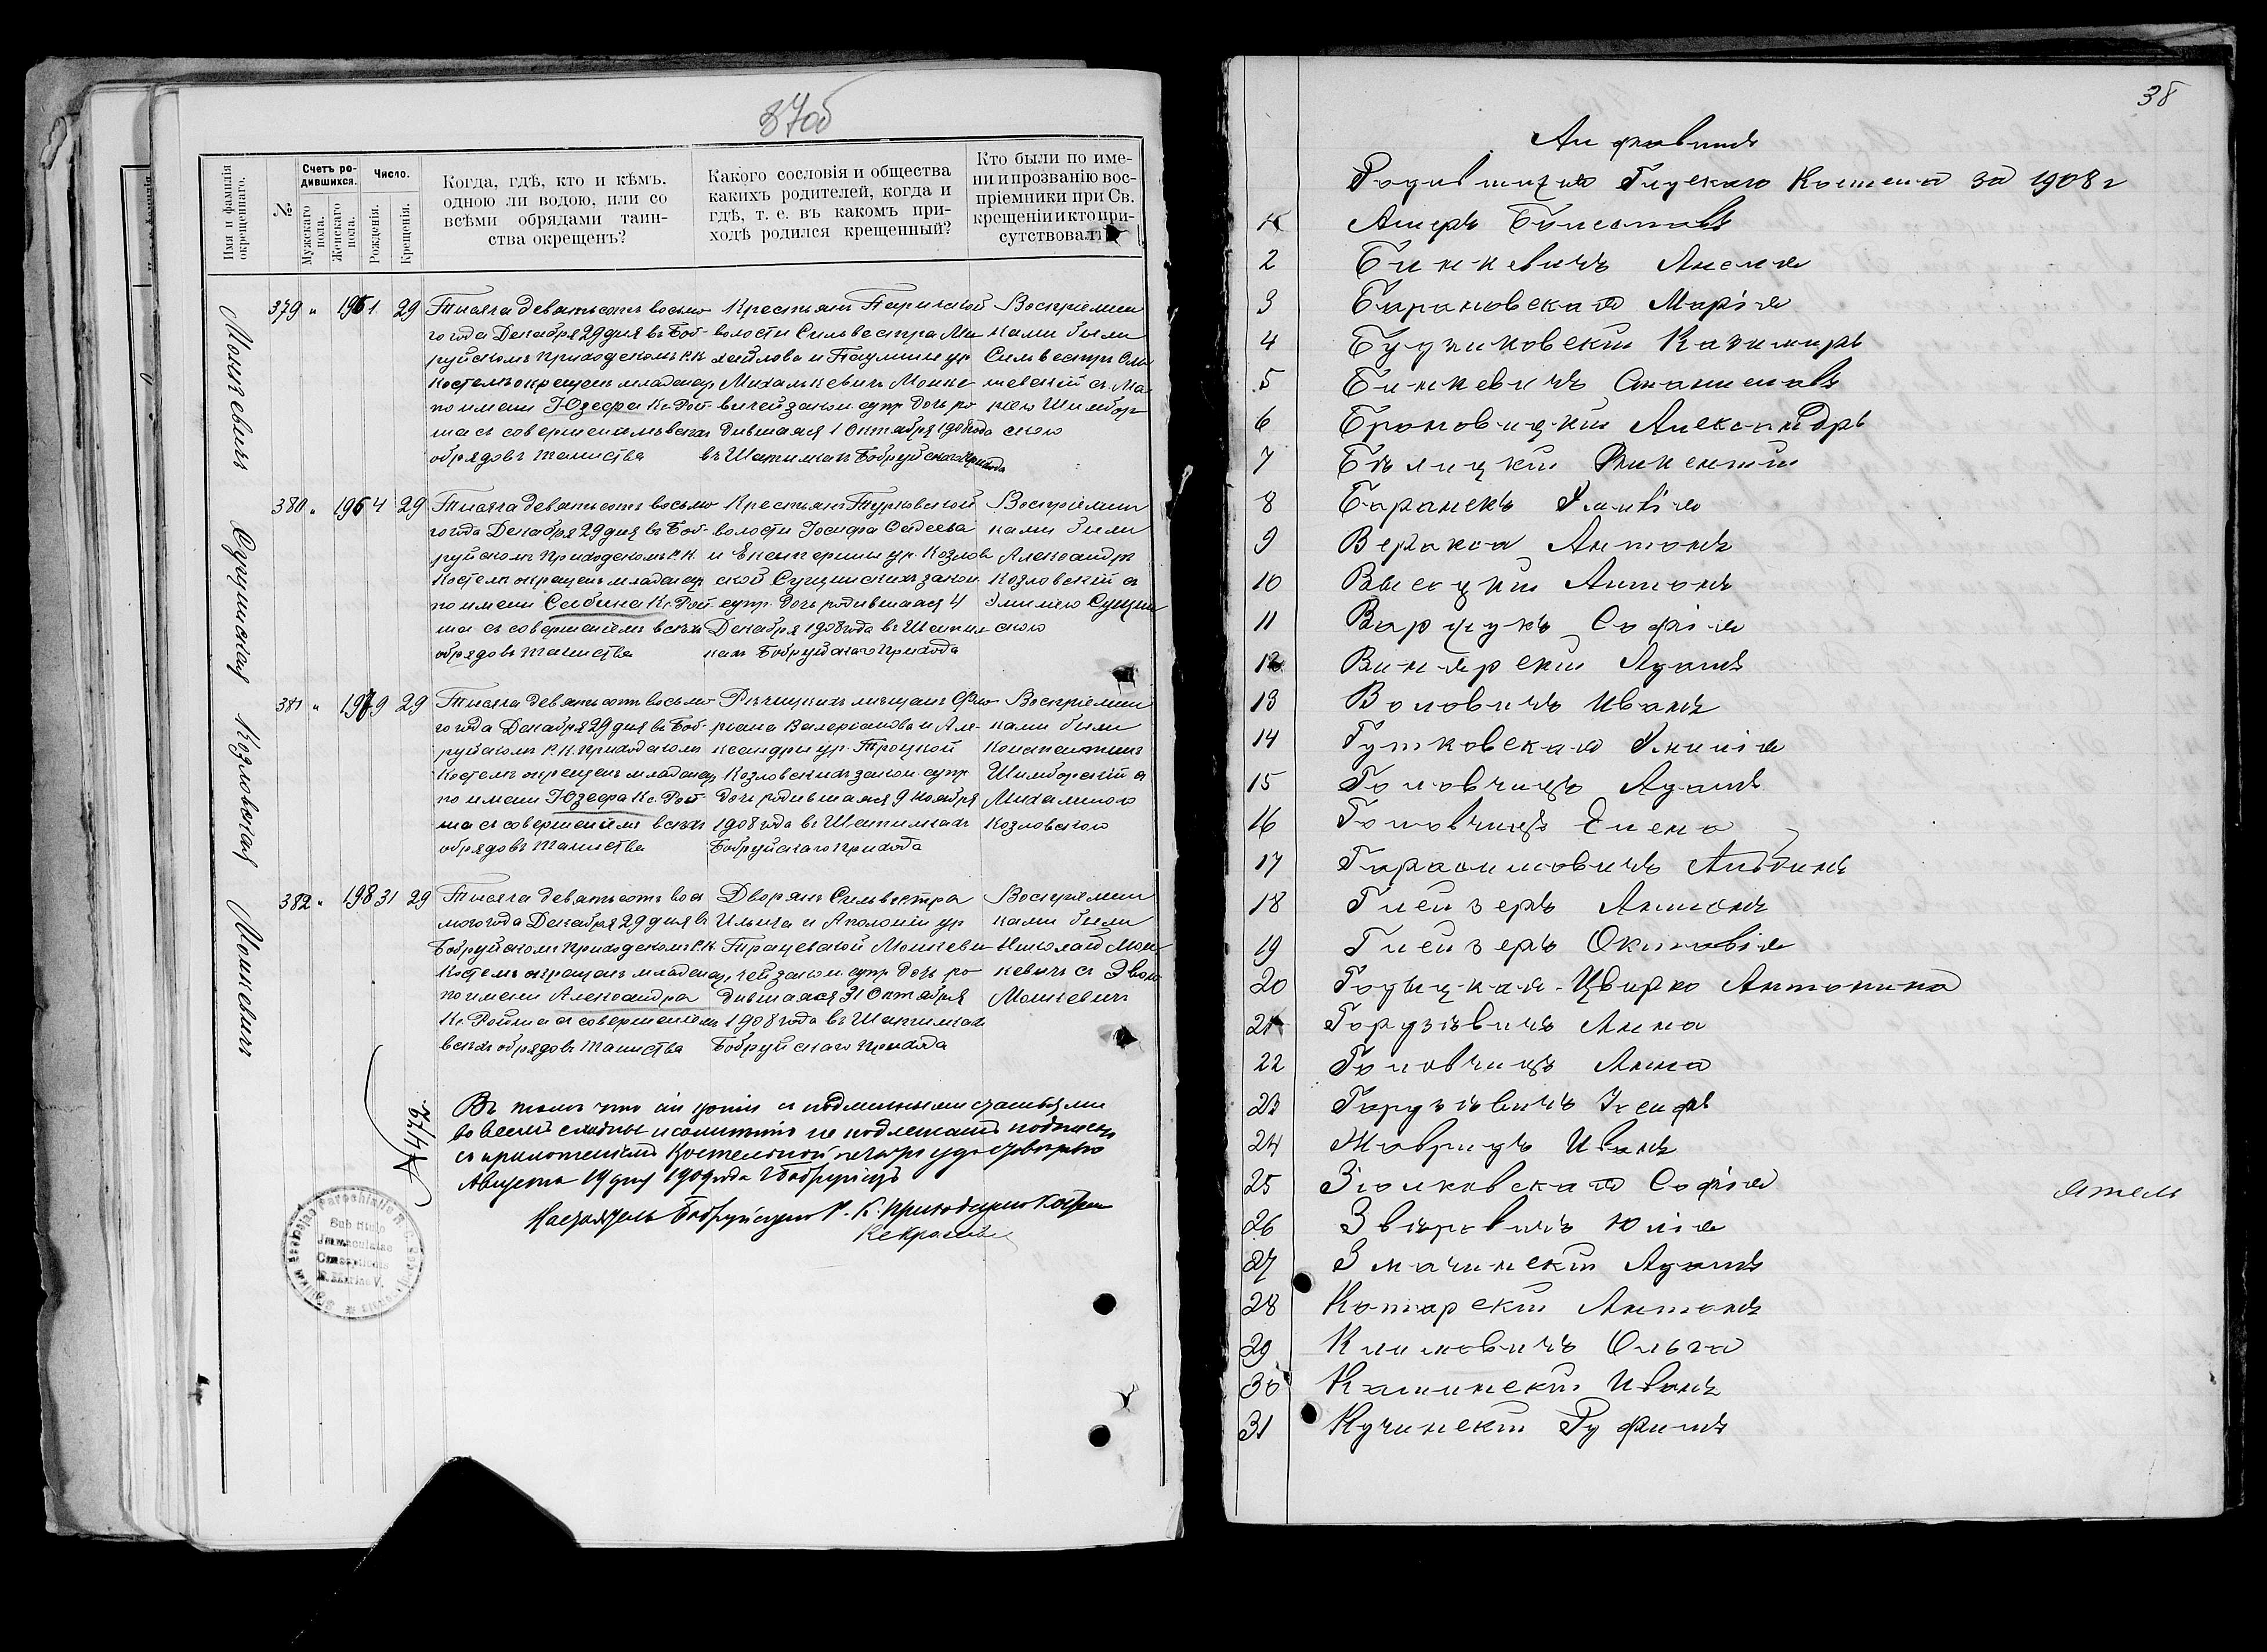 37об
Имя и фамилія окрещеннаго.
№.
Счетъ родившихся.
Мужскаго пола.
Женскаго пола.
Число.
Рожденія.
Крещенія.
Когда, гдѣ, кто и кѣмъ,
одною ли водою, или со
всѣми обрядами таин-
ства окрещенъ?
Какого сословія и общества
какихъ родителей, когда и
гдѣ, т. е. въ какомъ при-
ходѣ родился крещенный?
Кто были по име-
ни и прозванію вос-
пріемники при Св.
крещеніи и кто при-
сутствовалъ
Монкевичъ
379 " 195 1 29
Тысяча девятьсотъ восьмо-
го года Декабря 29 дня въ Боб-
руйскомъ приходскомъ Р.К.
костелѣ окрещенъ младенецъ
по имени Юзефа Кс. Рой-
ша съ совершеніемъ всѣхъ
обрядовъ таинства
Крестьянъ Паричской
волости Сильвестра Ми-
хайлова и Паулины ур.
Михалькевичъ Монке-
вичей закон. супр. дочь ро-
дившаяся 1 Октября 1908 года
въ Шатилкахъ Бобруйскаго прихода
Воспріемни-
ками были
Сильвестръ
шевскій съ Ма-
Шимбор-
скою
Сущинская
380 " 196 4 29
Тысяча девятьсотъ восьмо-
го года Декабря 29 дня въ Боб-
руйскомъ приходскомъ Р.К.
костелѣ окрещенъ младенецъ
по имени Сабина Кс. Рой-
ша съ совершеніемъ всѣхъ
обрядовъ таинства
Крестьянъ Турковской
волости Іосифа Фадеева
и ур. Козлов-
ской Сущинскихъ закон.
супр. дочь родившаяся 4
Декабря 1908 года въ Шатил-
кахъ Бобруйскаго прихода
Воспріемни-
ками были
Александръ
Козловскій съ
Эмиліею Сущин-
скою
Козловская
381 " 197 9 29
Тысяча девятьсотъ восьмо-
го года Декабря 29 дня въ Боб-
руйскомъ Р.К. приходскомъ
костелѣ окрещенъ младенецъ
по имени Юзефа Кс. Рой-
ша съ совершеніемъ всѣхъ
обрядовъ таинства
Рѣчицкихъ мѣщанъ Фло-
ріана Валеріанова и Але-
ксандры ур. Троцкой
Козловскихъ закон. супр.
дочь родившаяся 9 Ноября
1908 года въ Шатилкахъ
Бобруйскаго прихода
Воспріемни-
ками были
Константинъ
Шимборскій съ
Михалиною
Козловскою
Монкевичъ
382 " 198 31 29
Тысяча девятьсотъ вось-
мого года Декабря 29 дня въ
Бобруйскомъ приходскомъ Р.К.
костелѣ окрещенъ младенецъ
по имени Александра
Кс. Ройша съ совершеніемъ
всѣхъ обрядовъ таинства
Дворянъ Сильвестра
Ильича и Аполоніи ур.
Трацевской Монкеви-
чей закон. супр. дочь ро-
дившаяся 31 Октября
1908 года въ Шатилках
Бобруйскаго прихода
Воспріемни-
ками были
Николай Мон-
кевичъ съ
Монкевичъ
Въ томъ что сіи копіи съ подлинными статьями
во всемъ сходны и сомнѣнію не подлежатъ подписью
съ приложеніемъ Костельной печати удостовѣряю
Августа 19 дня 1909 года г Бобруйскъ
Настоятель Бобруйскаго Р. К. приходскаго Костела
Sub titulo
Immaculatae
Conceptionis
B. Mariae V.
38
Алфавитъ
Родившихся Глускаго Костела за 1908 г
1 Амеръ Болеславъ
2 Бинкевичъ Анеля
3 Барановская Марія
4 Будзиковскій Казиміръ
5 Бинкевичъ Станиславъ
6 Броновицкій Александръ
7 Бѣлицкій Викентій
8 Баранекъ
9 Веракса Антонъ
10 Высоцкій Антонъ
11 Варцукъ Софія
12 Винярскій Адамъ
13 Воловичъ Иванъ
14 Гутковская Эмилія
15 Головчицъ Адамъ
16 Головчицъ Елена
17 Гарасимовичъ Альбинъ
18 Глейзеръ Антонъ
19 Глейзеръ Октавія
20 Годыцкая-Цвирко Антонина
21 Горузѣвичъ Анна
22 Головчицъ Анна
23 Горузѣвичъ Іосифъ
24 Жавридъ Иванъ
25 Зіолковская Софія
26 Звѣровичъ Юлія
27 Змачинскій Адамъ
28 Котарскій Антонъ
29 Климовичъ Ольга
30 Калинскій Иванъ
31 Кучинскій Руфимъ